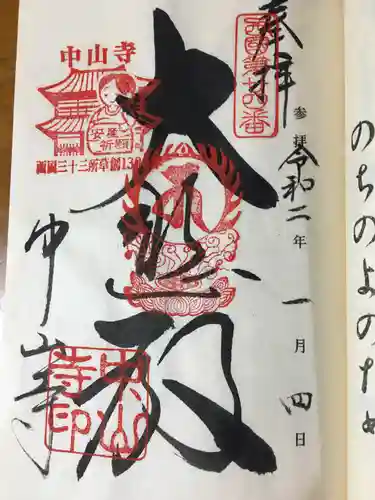 奉拝
西国第廿四番
参拝 令和二年一月四日
大悲殿
中山寺
安産祈願
西国三十三所草創130
中山寺
中山寺印
のちのよのため